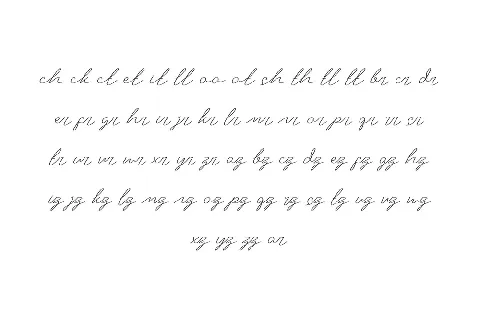 ch ck ct et it ll oo ot sh th tl tt br cr dr
er fr gr hr ir jr kr lr mr nr or pr qr rr sr
tr ur vr wr xr yr zr ag bg cg dg eg fg gg hg
ig jg kg lg mg ng og pg qg rg sg tg ug vg wg
xg yg zg ar